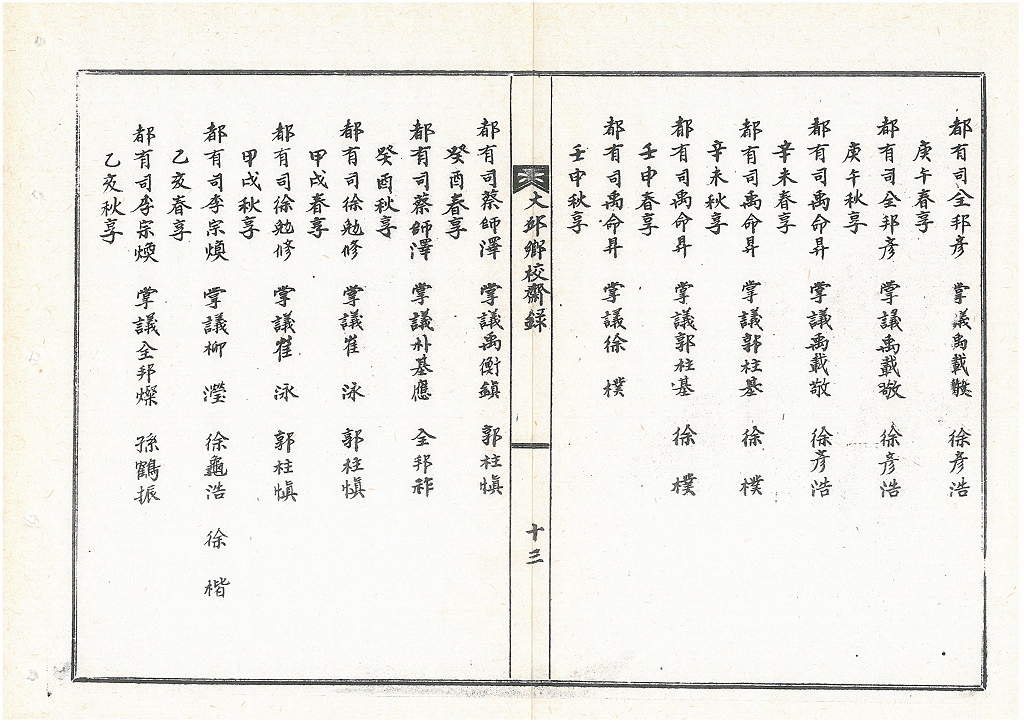 都有司全邦彦 掌議禹載敬 徐彦浩
庚午春享
都有司全邦彦 掌議禹載敬 徐彦浩
庚午秋享
都有司禹命昇 掌議禹載敬 徐彦浩
辛未春享
都有司禹命昇 掌議郭柱基 徐 樸
辛未秋享
都有司禹命昇 掌議郭柱基 徐 樸
壬申春享
都有司禹命昇 掌議徐 樸
壬申秋享
大邱鄉校齋録 十三
都有司蔡師澤 掌議禹衡鎮 郭柱愼
癸酉春享
都有司蔡師澤 掌議朴基應 全邦祚
癸酉秋享
都有司徐勉修 掌議崔 泳 郭柱愼
甲戌春享
都有司徐勉修 掌議崔 泳 郭柱愼
甲戌秋享
都有司李宗煥 掌議柳 瀅 徐龜浩 徐 楷
乙亥春享
都有司李宗煥 掌議全邦燦 孫鶴振
乙亥秋享